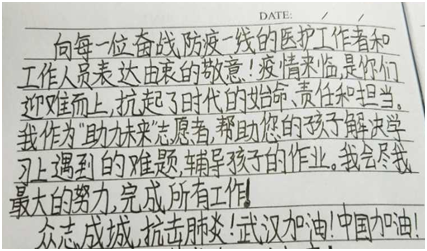 DATE: / /
向每一位奋战防疫一线的医护工作者和
工作人员表达由衷的敬意！疫情来临,是你们
迎难而上,抗起了时代的始命、责任和担当。
我作为"助力未来"志愿者,帮助您的孩子解决学
习上遇到的难题,辅导孩子的作业。我会尽我
最大的努力,完成所有工作!
众志成城,抗击肺炎！武汉加油！中国加油！